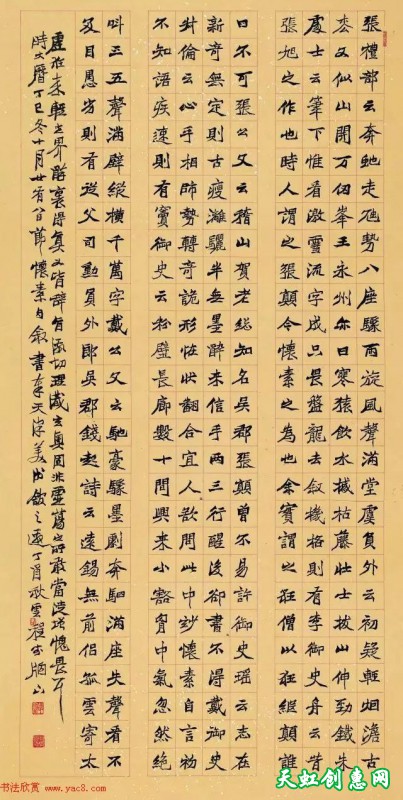 張禮部云奔馳走虺勢入座驟雨旋風聲滿堂盧員外云初疑輕烟澹古
松又似山開萬仞峯王永州邕曰寒猿飲水撼枯藤壯士拔山伸勁鐵朱
處士云筆下惟看激電流字成只畏盤龍去敘機格則有李御史舟云昔
張旭之作也時人謂之張顛今懷素之為也余實謂之狂僧以狂繼顛誰
曰不可張公又云稽山賀老粗知名吳郡張顛曾不易許御史瑤云志在
新奇無定則古瘦灕驪半無墨醉來信手兩三行醒後卻書不得戴御史
叔倫云心手相師勢轉奇詭形怪狀翻合宜人欲問此中妙懷素自言初
不知語疾速則有竇御史云粉壁長廊數十間興來小豁胸中氣忽然絕
叫三五聲滿壁縱橫千萬字戴公又云馳豪驟墨劇奔駟滿座失聲看不
及目愚劣則有從父司勳員外郎吳郡錢起詩云遠錫無前侶孤雲寄太
虛狂來輕世界醉裏得真又皆辭旨激切理識玄奧固非虛蕩之所敢當徒增愧畏耳
時大曆丁巳冬十月廿有八日節懷素自敘書奉天岸美出之邀丁酉秋雲程
书法欣赏 www.yac8.com
天虹创惠网